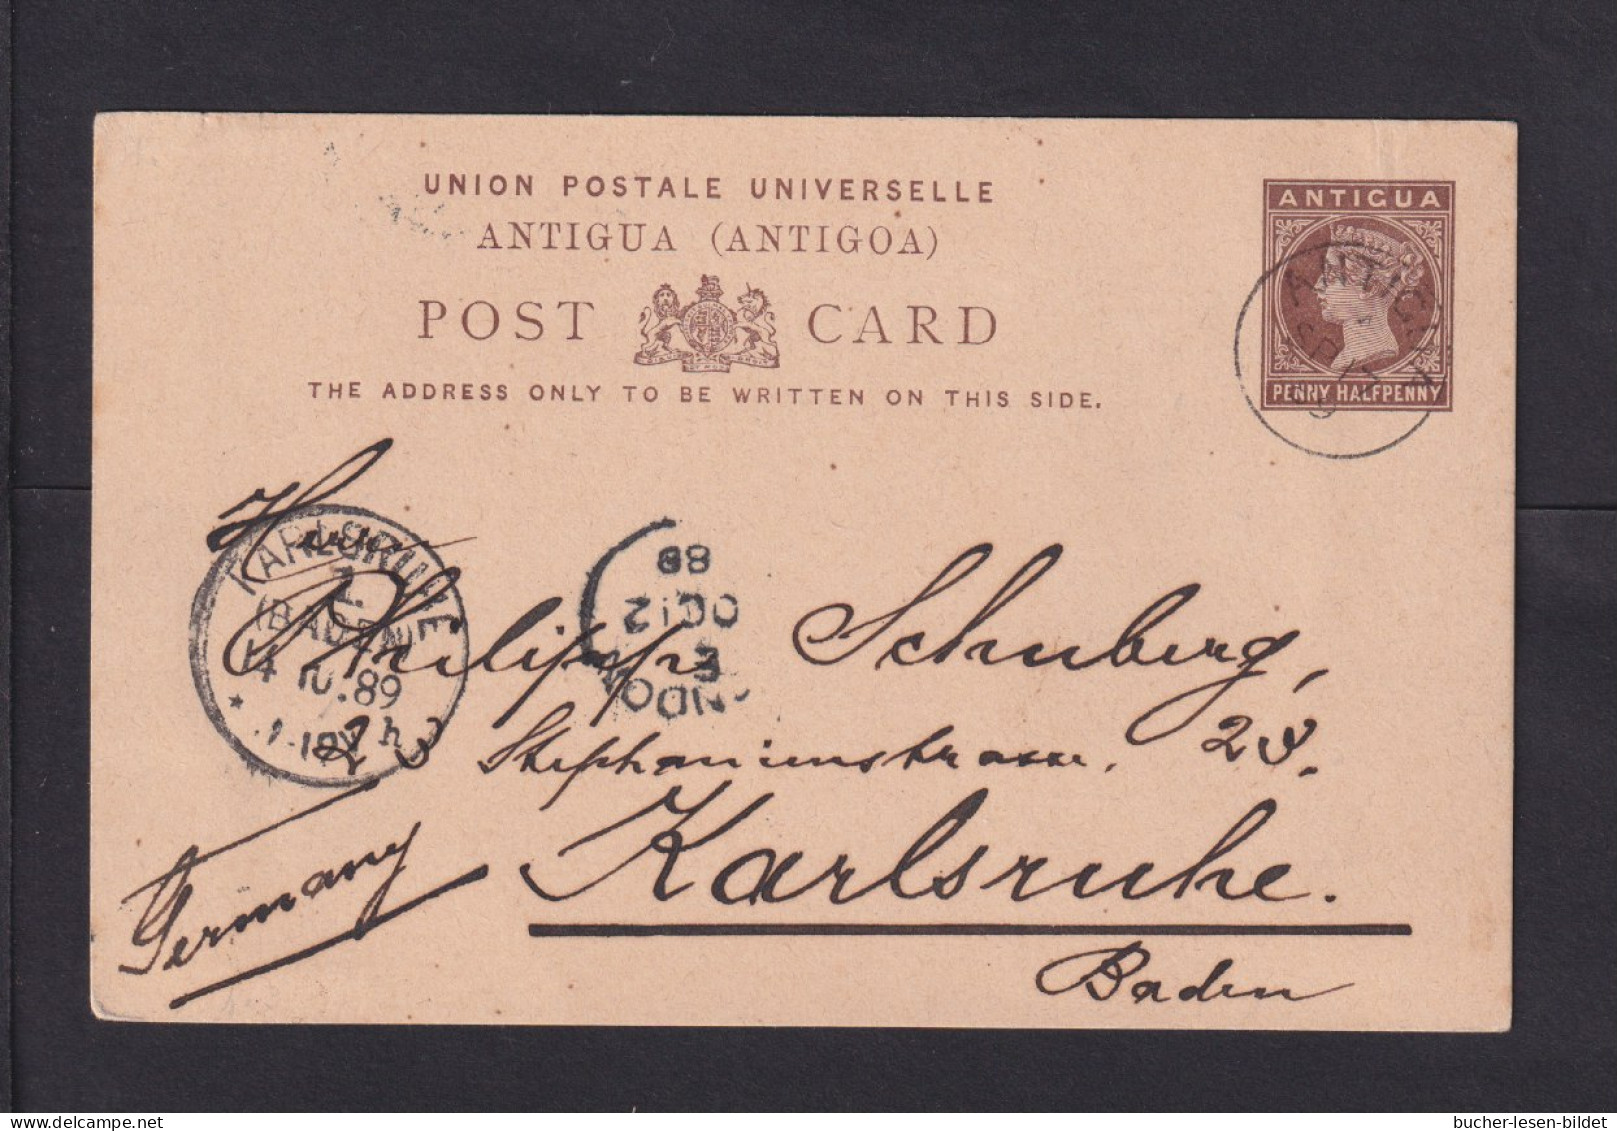 UNION POSTALE UNIVERSELLE
ANTIGUA (ANTIGOA)
POST CARD
THE ADDRESS ONLY TO BE WRITTEN ON THIS SIDE.
ANTIGUA
PENNY HALFPENNY
ANTIGUA
SP 17
Herrn
Philipp Schuberg,
23 Stephanienstrasse. 23.
Karlsruhe.
Baden
Germany
KARLSRUHE
(BADEN)
14 10.89
LONDON
E
OC 12
89
bucher-lesen-bildet